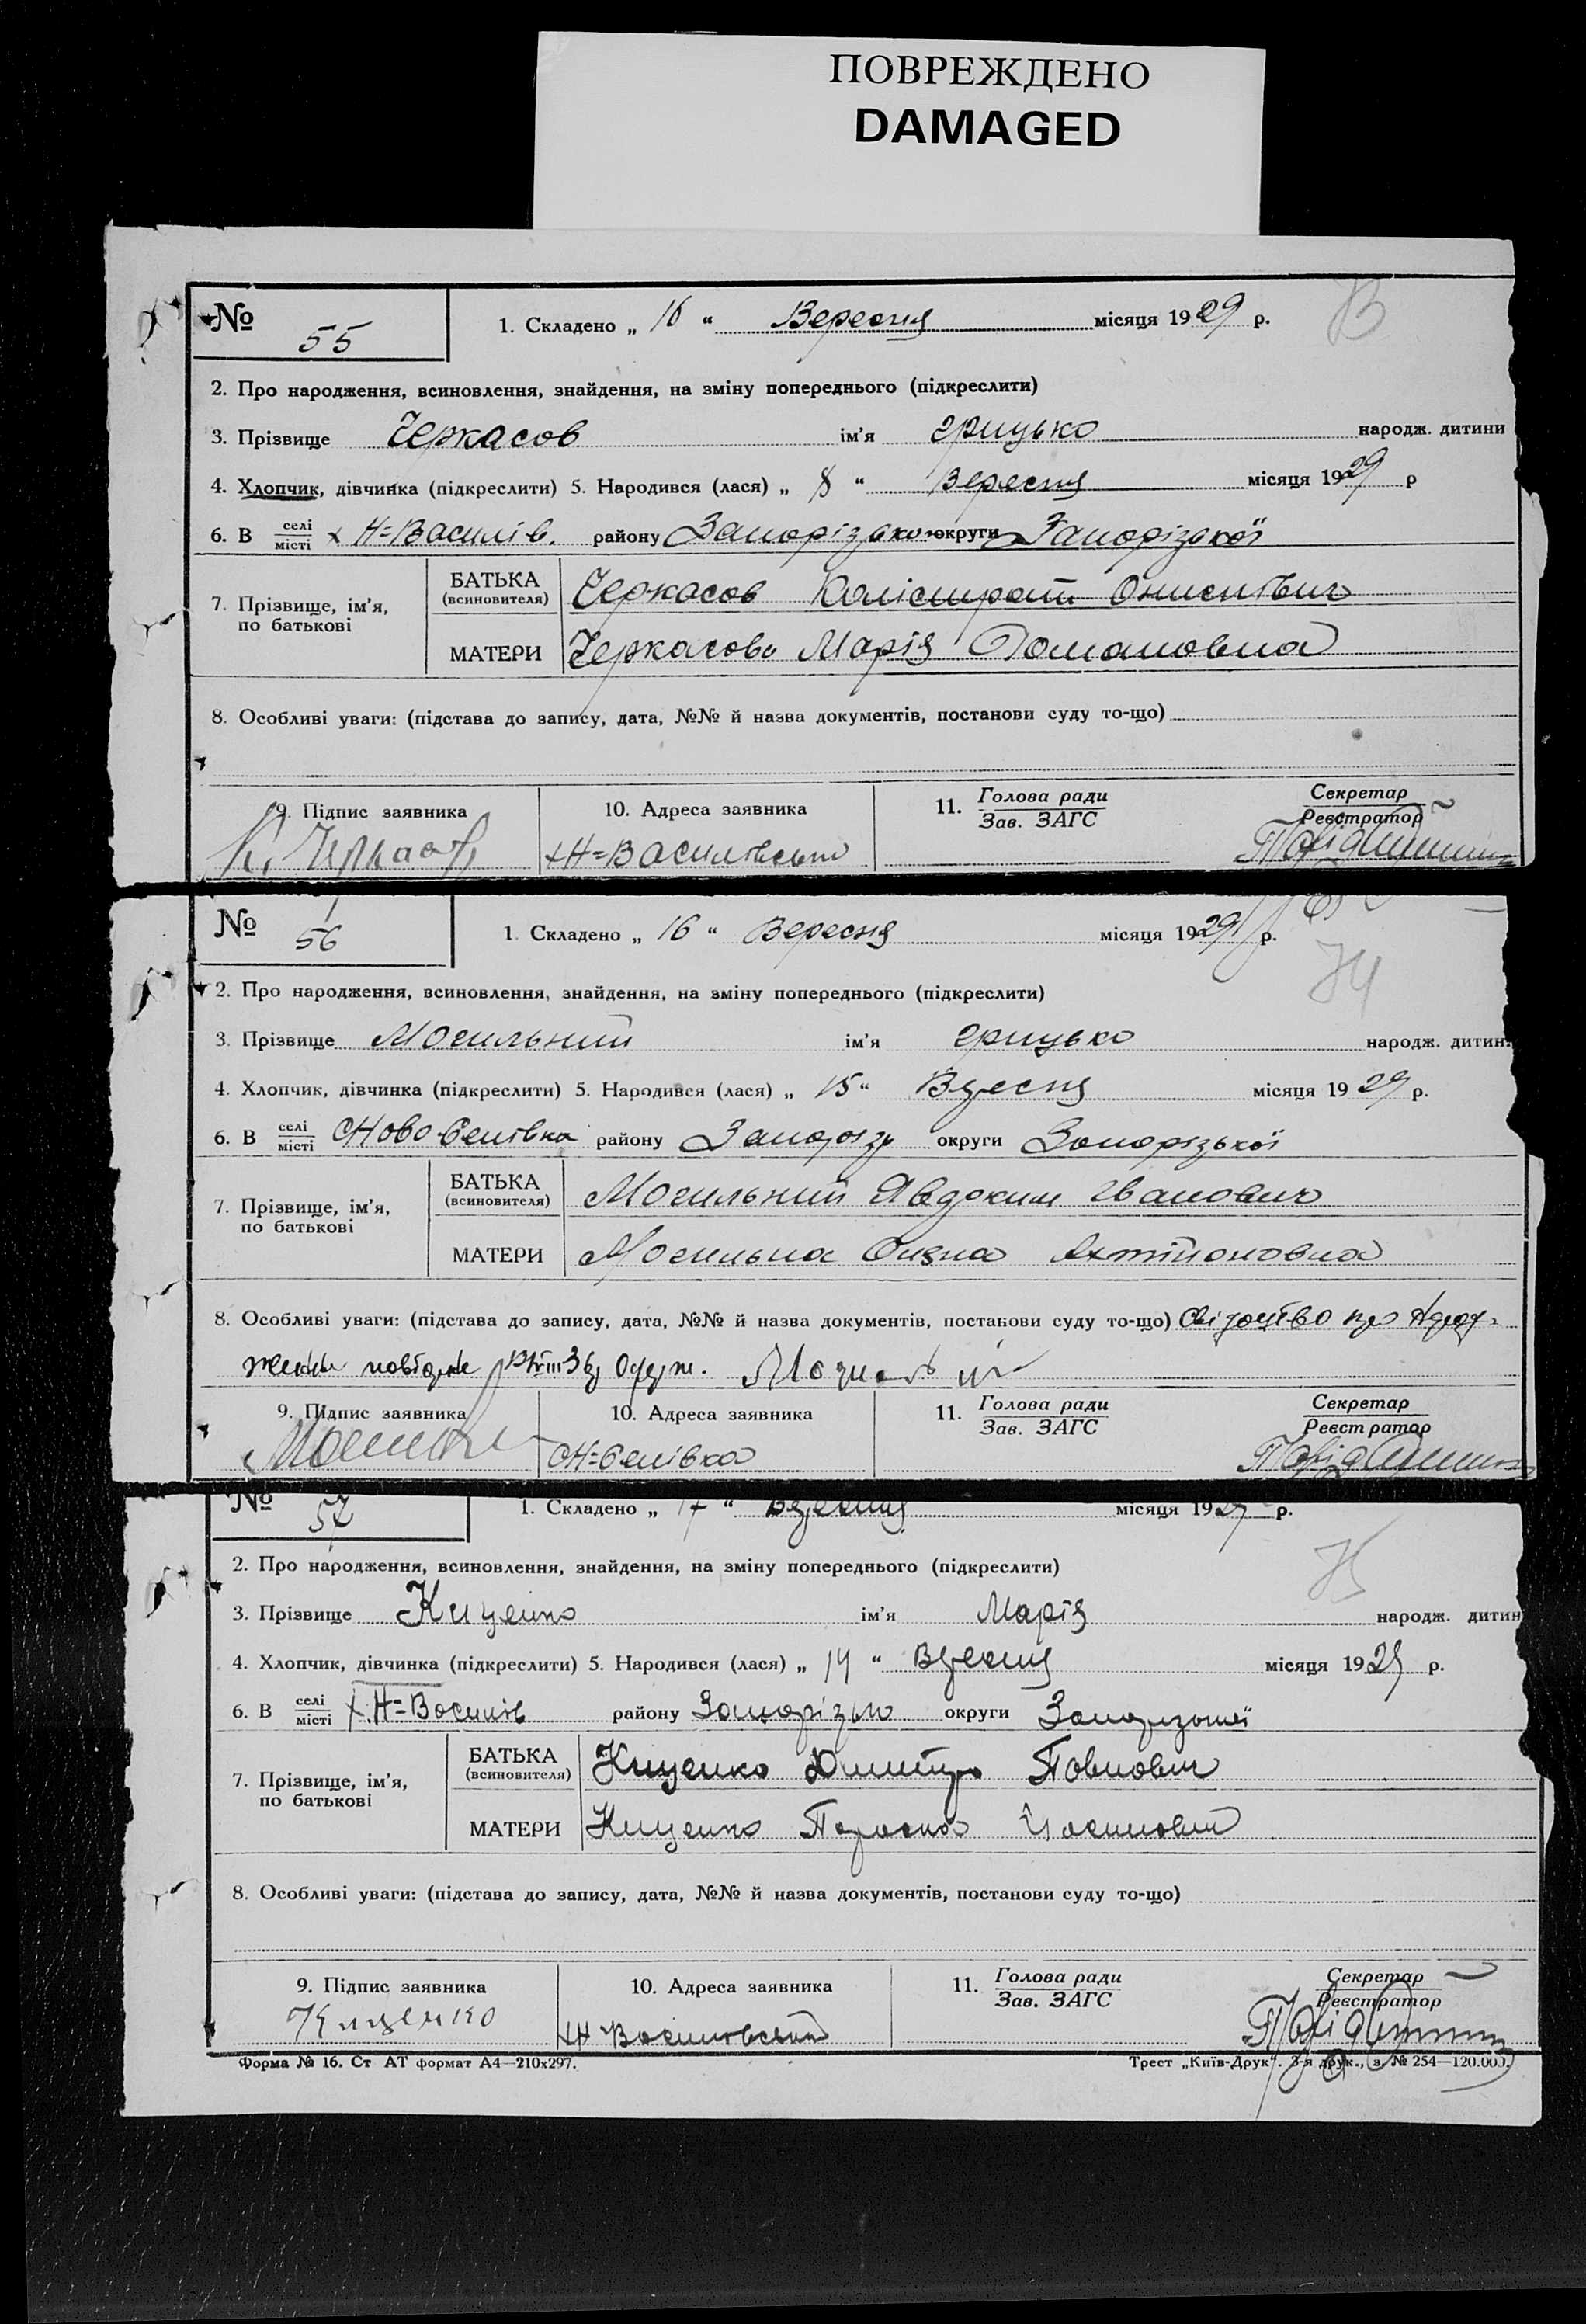 ПОВРЕЖДЕНО
DAMAGED
№ 55
1. Складено „ 16 “ Вересня місяця 1929 р.
73
2. Про народження, всиновлення, знайдення, на зміну попереднього (підкреслити)
3. Прізвище Черкасов ім’я Грицько народж. дитини
4. Хлопчик, дівчинка (підкреслити) 5. Народився (лася) „ 8 “ Вересня місяця 1929 р
6. В селі/місті х Н=Василів. району Запорізького округи Запорізької
7. Прізвище, ім’я, по батькові
БАТЬКА (всиновителя) Черкасов Калістрат Онисиєвич
МАТЕРИ Черкасова Марія Романовна
8. Особливі уваги: (підстава до запису, дата, №№ й назва документів, постанови суду то-що)
9. Підпис заявника
10. Адреса заявника
11. Голова ради / Зав. ЗАГС
Секретар / Реєстратор
К. Черкасов
х Н=Василівсько
№ 56
1. Складено „ 16 “ Вересня місяця 1929 р.
74
2. Про народження, всиновлення, знайдення, на зміну попереднього (підкреслити)
3. Прізвище Могильний ім’я Грицько народж. дитин
4. Хлопчик, дівчинка (підкреслити) 5. Народився (лася) „ 15 “ Вересня місяця 1929 р.
6. В селі/місті району Запоріз округи Запорізької
7. Прізвище, ім’я, по батькові
БАТЬКА (всиновителя) Могильний Явдоким Іванович
МАТЕРИ Могильна
8. Особливі уваги: (підстава до запису, дата, №№ й назва документів, постанови суду то-що) Свідоцтво про народ-
ження
9. Підпис заявника
10. Адреса заявника
11. Голова ради / Зав. ЗАГС
Секретар / Реєстратор
№ 57
1. Складено „ 17 “ Вересня місяця 1929 р.
75
2. Про народження, всиновлення, знайдення, на зміну попереднього (підкреслити)
3. Прізвище Кищенко ім’я Марія народж. дитин
4. Хлопчик, дівчинка (підкреслити) 5. Народився (лася) „ 14 “ Вересня місяця 1929 р.
6. В селі/місті х Н=Василів району Запорізько округи Запорізької
7. Прізвище, ім’я, по батькові
БАТЬКА (всиновителя) Кищенко Дмитро Павлович
МАТЕРИ Кищенко Параска
8. Особливі уваги: (підстава до запису, дата, №№ й назва документів, постанови суду то-що)
9. Підпис заявника
10. Адреса заявника
11. Голова ради / Зав. ЗАГС
Секретар / Реєстратор
Кищенко
х Н Василівський
Форма № 16. Ст АТ формат А4—210х297.
Трест „Київ-Друк“. 3-я друк., з. № 254—120.000.